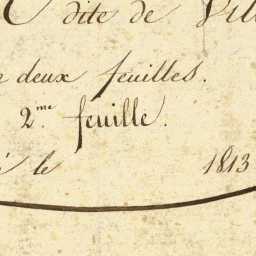 dite de Vill
deux feuilles.
2.me feuille.
é le 1813